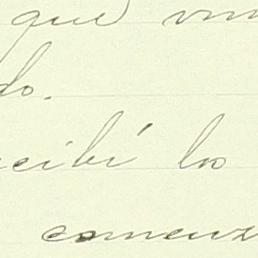 que
do.
ecibí los
comenz